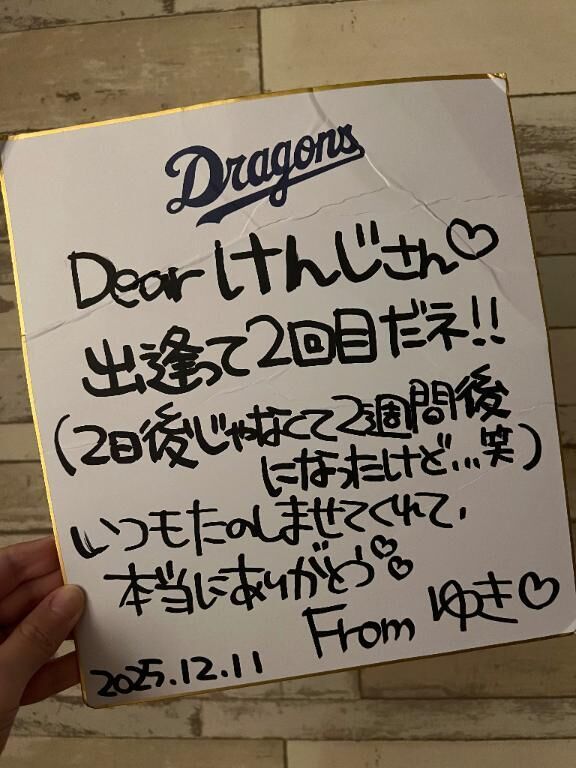 Dragons
Dear けんじさん♡
出逢って2回目だネ!!
(2日後じゃなくて2週間後
になったけど...笑)
いつもたのしませてくれて、
本当にありがとう♡♡
From ゆき♡
2025.12.11